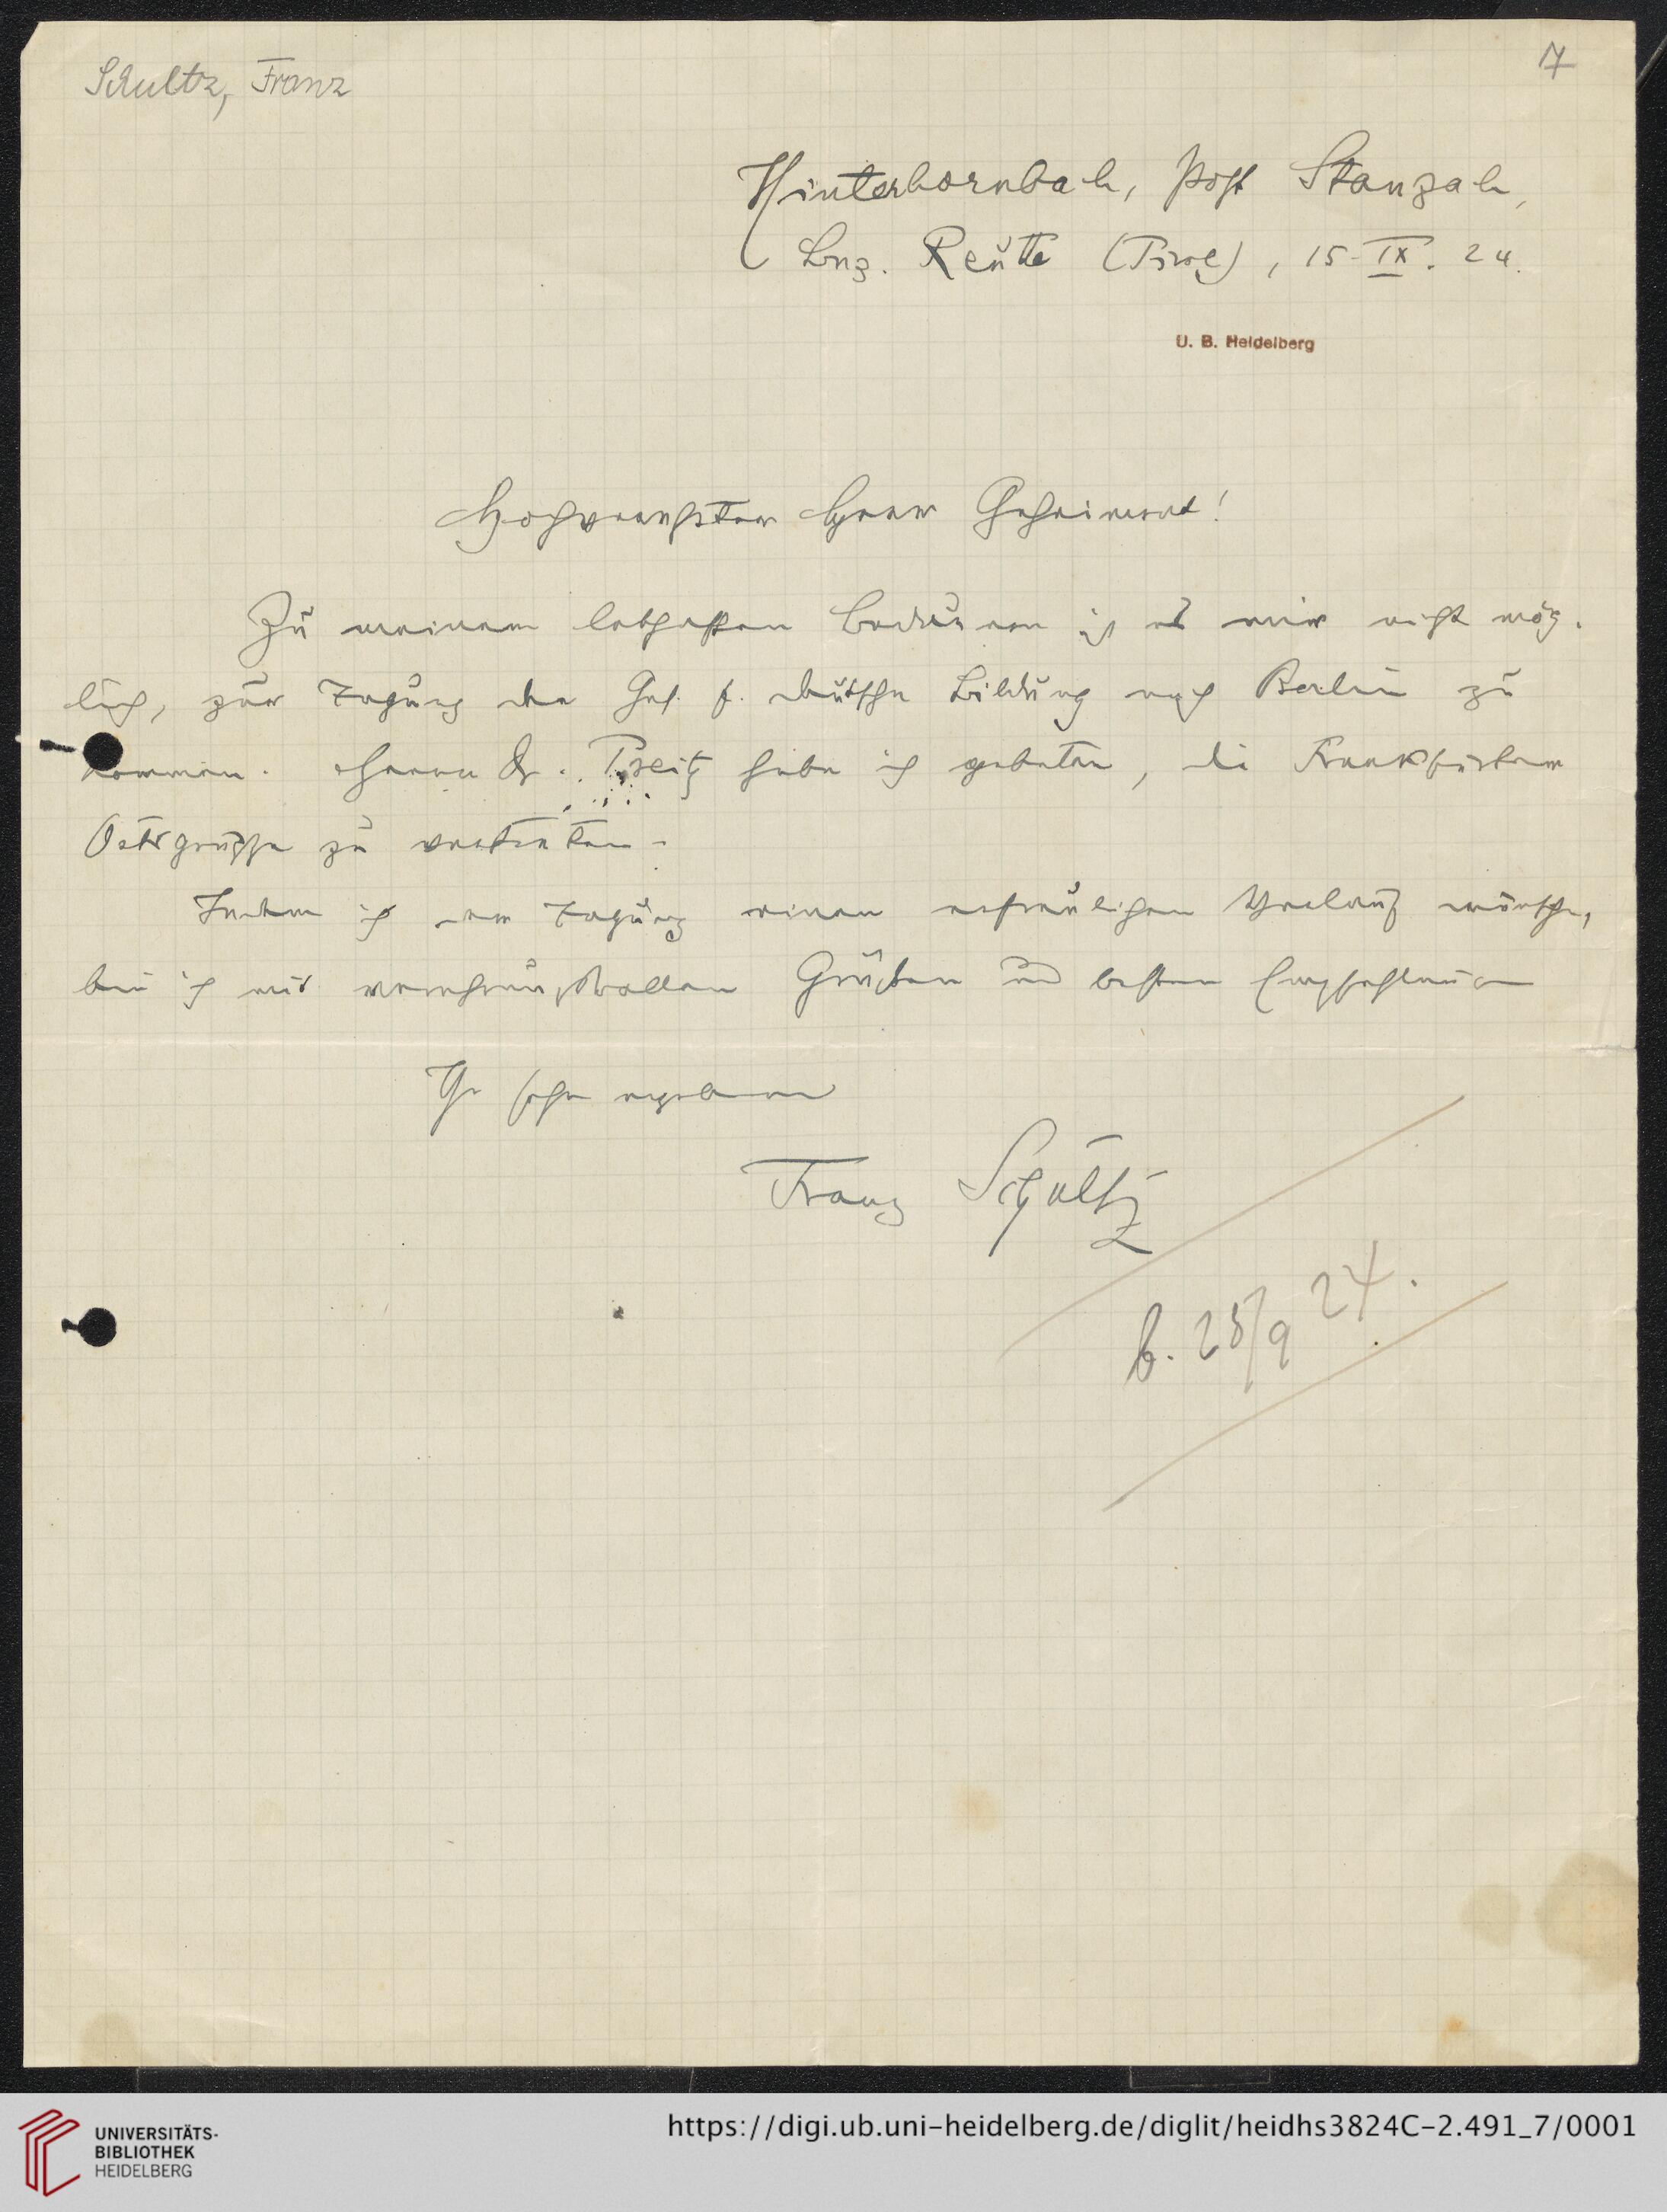 Schultz, Franz
7
Hinterhornbach, Post Stanzach,
Bez. Reutte (Tirol), 15. IX. 24.
U. B. Heidelberg
Hochverehrter Herr Geheimrat!
Zu meinem lebhaften Bedauern ist es mir nicht mög-
lich, zur Tagung der Ges. f. deutsche Bildung nach Berlin zu
kommen. Herrn Dr. habe ich gebeten, die Frankfurter
Ortsgruppe zu vertreten.
Indem ich der Tagung einen erfreulichen Verlauf wünsche,
bin ich mit verehrungsvollen Grüßen und besten Empfehlungen
Ihr sehr ergebener
Franz Schultz
b. 25/9 24.
UNIVERSITÄTS-
BIBLIOTHEK
HEIDELBERG
https://digi.ub.uni-heidelberg.de/diglit/heidhs3824C-2.491_7/0001